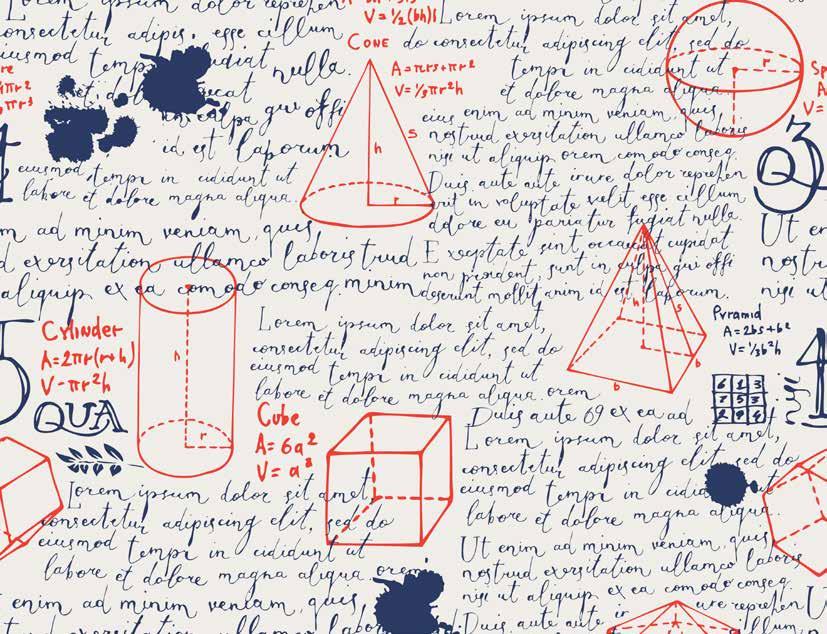 Lorem ipsum dolor reprehen
dipis. esse cillum
eiusmod temp fudiat nulla.
et. do
culpa qui offi
id est laborum.
eiusmod. tempi in cididunt ut
labore et dolore magna aliqua.
m ad minim veniam, quis
d exersitation ullamco laboris trud
aliquip ex ea comodo conseq. minim
V = ½(bh)l
CONE
A = πrs+πr²
V = ⅓πr²h
h
s
r
Lorem ipsum dolor sit amet,
do consectetur adipiscing elit, sed do
tempi in cididunt ut
et dolore magna aliqua.
eius enim ad minim veniam, quis,
nostrud exersitation ullamco laboris
nisi ut aliquip orem comodo conseq.
Duis aute aute irure dolor reprehen
erit in voluptate velit esse cillum
dolore eu pariatur fugiat nulla.
E xceptate sint occaecat cupidat
non proident, sunt in culpa qui offi
deserunt mollit anim id est laborum.
r
Q
3
Ut en
nostru
nisi ut
Cylinder
A=2πr(r+h)
V-πr²h
QUA
h
r
Lorem ipsum dolor sit amet,
consectetur adipiscing elit, sed do
eiusmod tempi in cididunt ut
labore et dolore magna aliqua. orem
h
s
b
b
Pyramid
A=2bs+b²
V=⅓b²h
Cube
A= 6a²
V= a³
Duis aute 69 ex ea ad
Lorem ipsum dolor sit amet,
consectetur adipiscing elit, sed do
eiusmod tempi in cididunt
labore et dolore magna aliqua.
Lorem ipsum dolor sit amet,
consectetur adipiscing elit, sed do
eiusmod tempi in cididunt ut
labore et dolore magna aliqua orem
enim ad minim veniam, quis,
exersitation ullamco labo
Ut enim ad minim veniam, quis,
nostrud exersitation ullamco laboris
nisi ut aliquip ex ea comodo conseq.
Duis aute aute ir ure reprehen